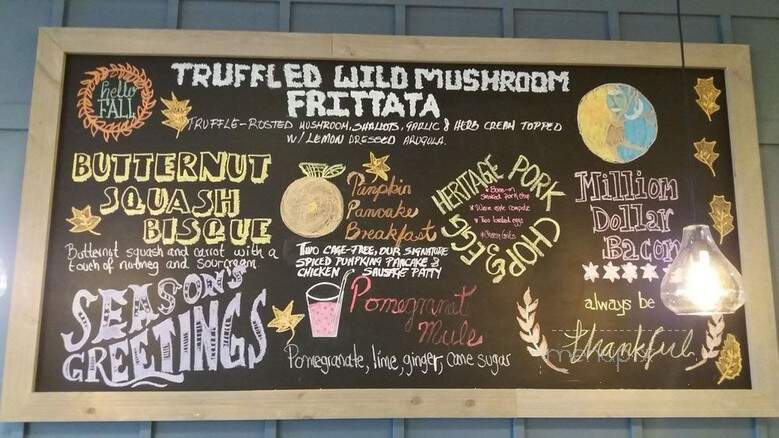 hello
FALL
TRUFFLED WILD MUSHROOM
FRITTATA
TRUFFLE-ROSTED MUSHROOM, SHALLOTS, GARLIC & HERB CREAM TOPPED
W/ LEMON DRESSED ARUGULA.
BUTTERNUT
SQUASH
BISQUE
Butternut squash and carrot with a
touch of nutmeg and sourcream
Pumpkin
Pancake
Breakfast
TWO CAGE-FREE, OUR SIGNATURE
SPICED PUMPKING PANCAKE &
CHICKEN SAUSAGE PATTY
HERITAGE PORK CHOP & EGGS
Bone-in
Smoked pork chop
Warm apple compote
Two basted eggs
Cheesy Grits
Million
Dollar
Bacon
SEASON'S
GREETINGS
Pomegranat
Mule
Pomegranate, lime, ginger, cane sugar
always be
thankful